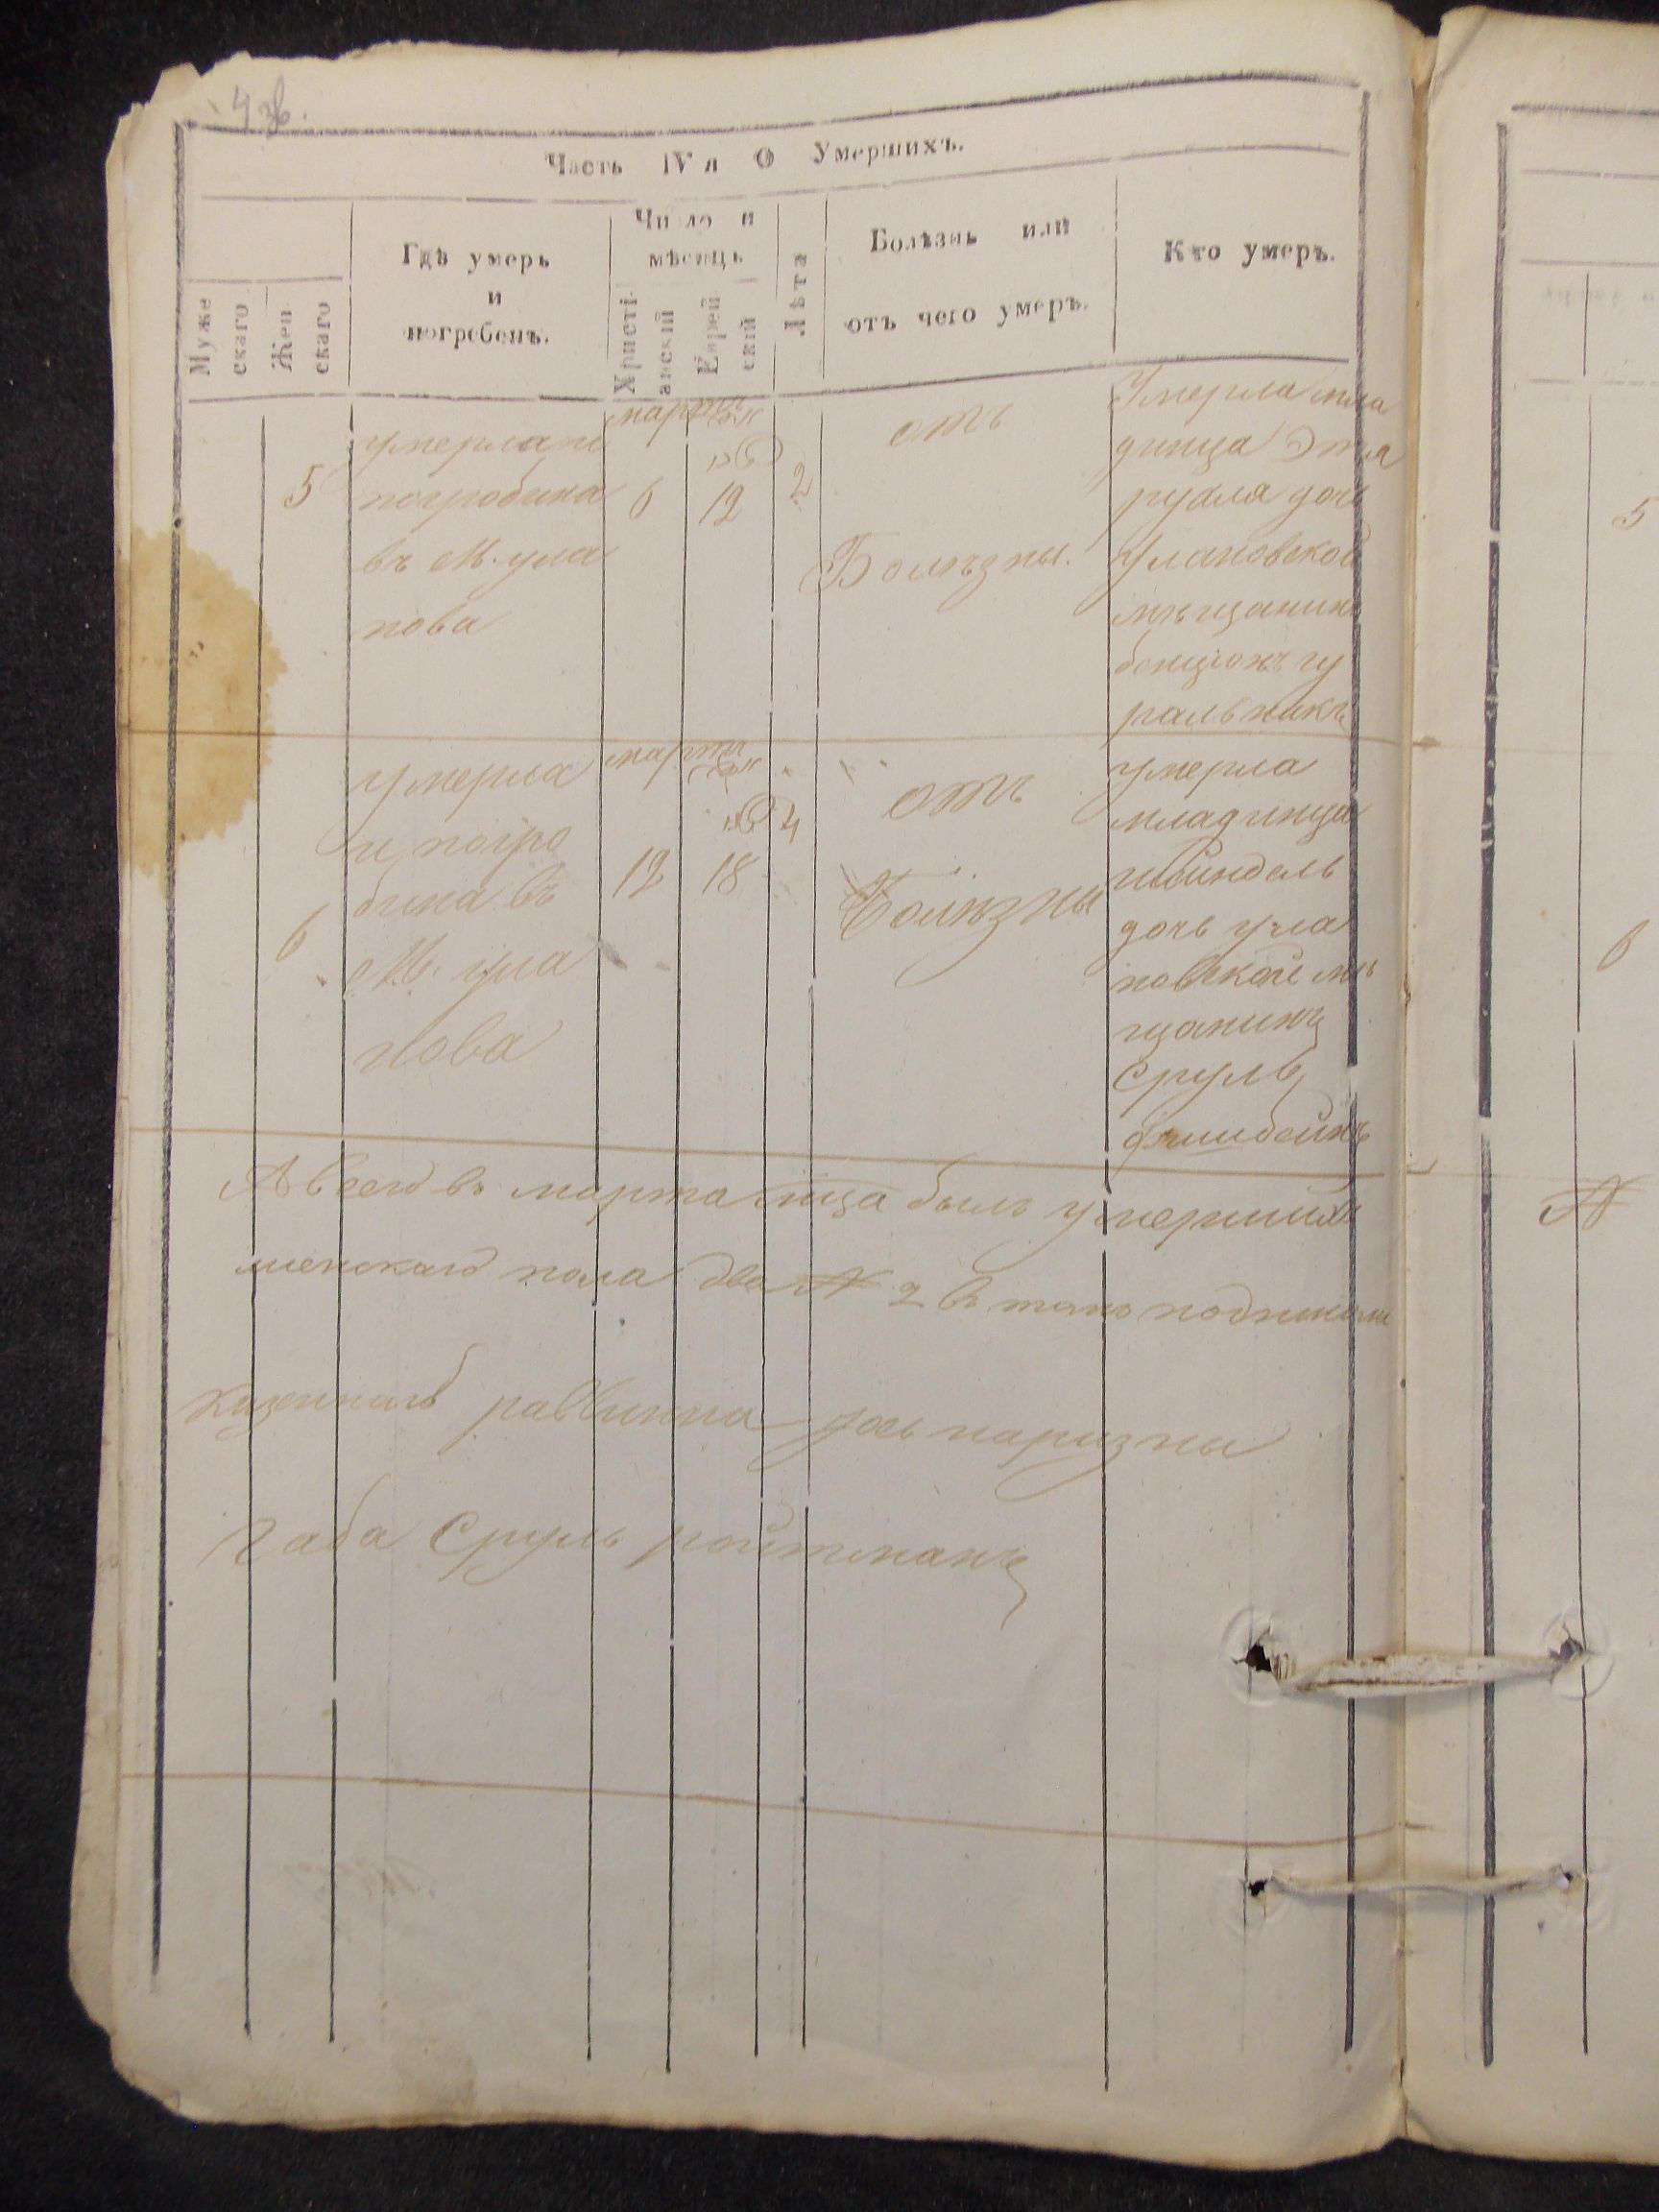 4 зв.
Часть IV я О Умершихъ.
Муже
скаго
Жен
скаго
Гдѣ умеръ
и
погребенъ.
Число и
мѣсяцъ
Христі-
анскій
Еврей-
скій
Лѣта
Болѣзнь или
отъ чего умеръ.
Кто умеръ.
5
умерла и
погробина
въ М. ула
нова
мартъ
6
12
2
отъ
Болѣзны.
Умерла мла
динца Этя
рухля дочь
Улановской
мѣщанинъ
бенціонъ гу
ральникъ
6
умерла
и погро
бина въ
М. ула
нова
мартъ
12
18
4
отъ
Болѣзны
умерла
младинца
шейндель
дочь ула
новской мѣ
щанинъ
Сруль
фишбейнъ
А всего въ марта мца былъ умершихъ
женскаго пола два № 2 въ томъ подписомъ
казенный раввина
Габа Сруль ройтманъ
5
6
А